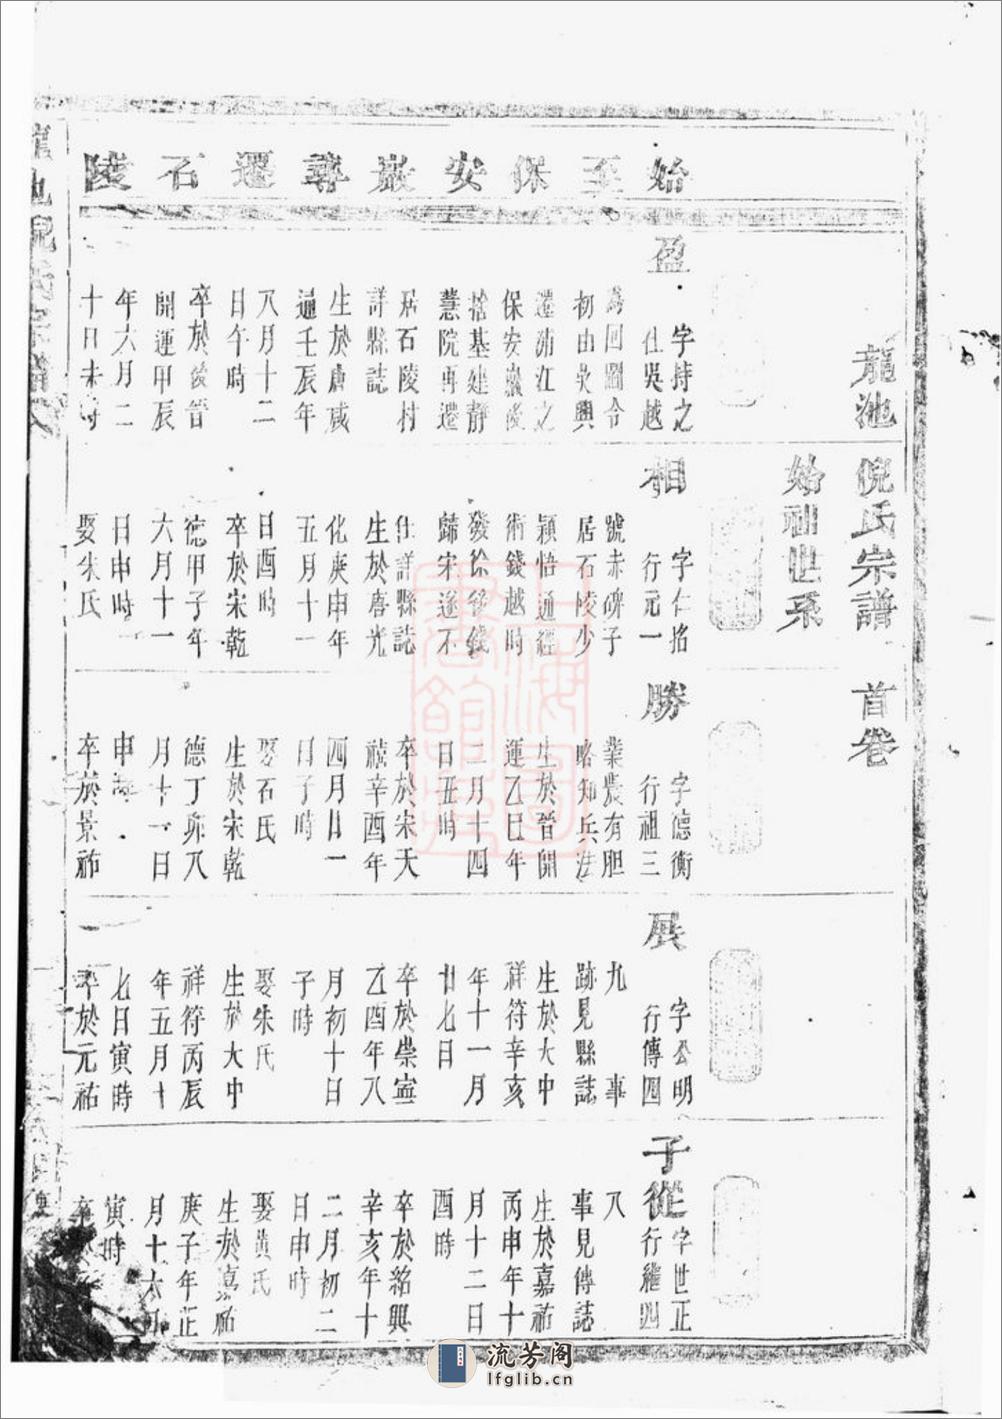 始至保安巖尋遷石陵
龍池倪氏宗譜 首卷
始祖世系
盈
字持之
仕吳越
爲回圖令
初由吳興
遷浦江之
保安巖後
捨基建靜
慧院再遷
居石陵村
詳縣誌
生於唐咸
通壬辰年
八月十二
日午時
卒於後晉
開運甲辰
年六月二
十日未時
相
字仁拾
行元一
號赤碑子
居石陵少
穎悟通經
術錢越時
發徐後錢
歸宋遂不
仕詳縣誌
生於唐光
化庚申年
五月十一
日酉時
卒於宋乾
德甲子年
六月十一
日申時
娶朱氏
勝
字德衡
行祖三
業農有胆
略知兵法
生於晉開
運乙巳年
二月十四
日丑時
卒於宋天
禧辛酉年
四月廿一
日子時
娶石氏
生於宋乾
德丁卯八
月十一日
申時
卒於景祐
展
字公明
行傳四
九事
跡見縣誌
生於大中
祥符辛亥
年十一月
廿七日
卒於崇寧
乙酉年八
月初十日
子時
娶朱氏
生於大中
祥符丙辰
年五月十
七日寅時
卒於元祐
子從
字世正
行繼四
八
事見傳誌
生於嘉祐
丙申年十
月十二日
酉時
卒於紹興
辛亥年十
二月初二
日申時
娶黃氏
生於嘉祐
庚子年正
月十六日
寅時
卒
龍池倪氏宗譜
流芳阁
lfglib.cn